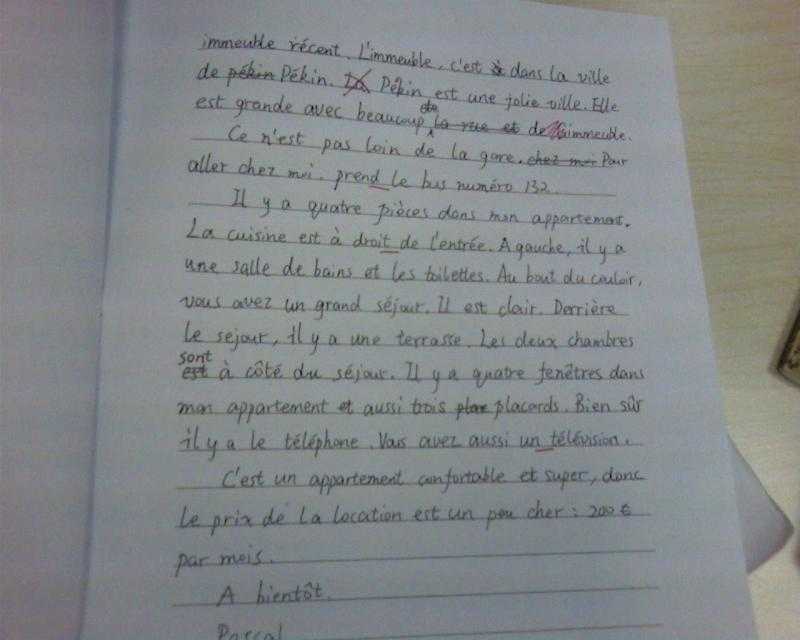 immeuble récent. L'immeuble, c'est à dans la ville
de pékin Pékin. La Pékin est une jolie ville. Elle
est grande avec beaucoup de la rue et de immeuble.
Ce n'est pas loin de la gare. chez moi Pour
aller chez moi. prend le bus numéro 132.
Il y a quatre pièces dans mon appartement.
La cuisine est à droit de l'entrée. A gauche, il y a
une salle de bains et les toilettes. Au bout du couloir,
vous avez un grand séjour. Il est clair. Derrière
le sejour, il y a une terrasse. Les deux chambres
sont
est à côté du séjour. Il y a quatre fenêtres dans
mon appartement et aussi trois placards. Bien sûr
il y a le téléphone. Vous avez aussi un télévision.
C'est un appartement confortable et super, donc
le prix de la location est un peu cher : 200 €
par mois.
A bientôt.
Pascal